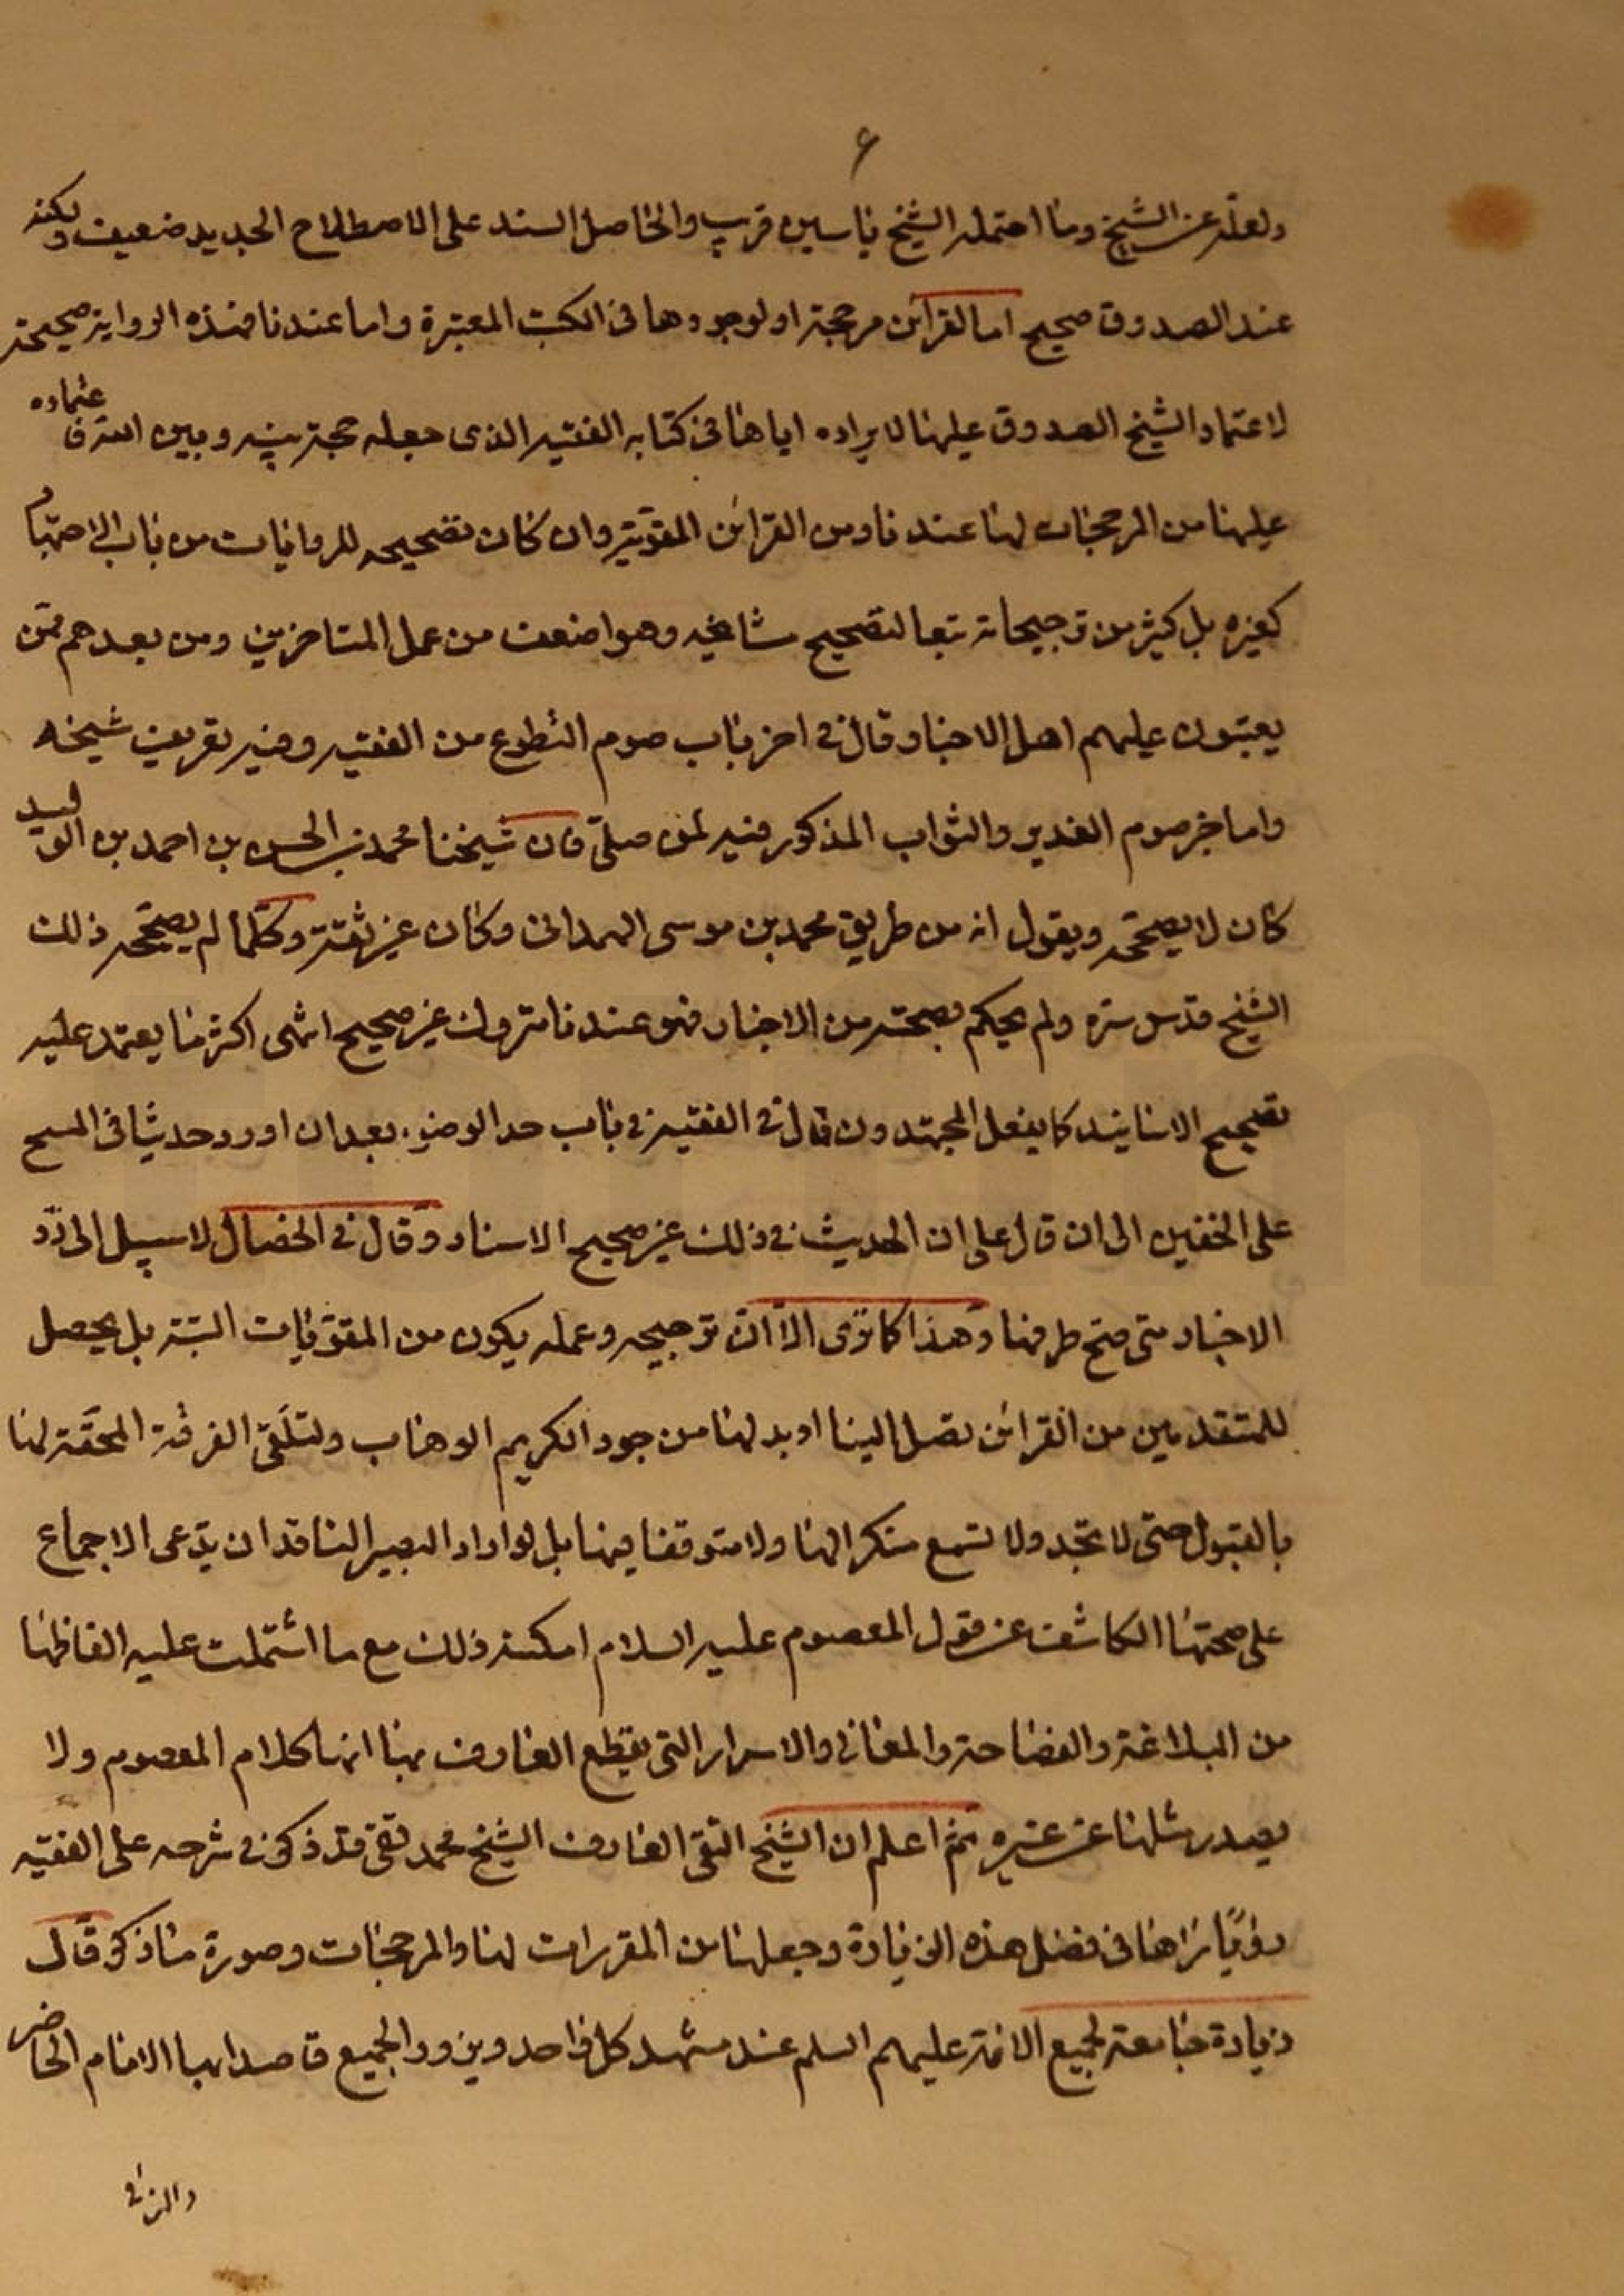 ۶
ولعله عن الشيخ وما احتمله الشيخ ياسين قريب والحاصل السند على الاصطلاح الجديد ضعيف ولكنه
عند الصدوق صحيح اما لقرائن مرجحة او لوجودها في الكتب المعتبرة واما عندنا فهذه الرواية صحيحة
لاعتماد الشيخ الصدوق عليها لايراده اياها في كتابه الفقيه الذي جعله حجة بينه وبين الله فاعتماده
عليها من المرجحات لها عندنا ومن القرائن المقوية وان كان تصحيحه للروايات من باب الاجتهاد
كغيره بل كثير من ترجيحاته تبعا لتصحيح مشايخه وهو اضعف من عمل المتاخرين ومن بعدهم ممن
يعيبون عليهم اهل الاخبار وقال في اخر باب صوم التطوع من الفقيه وفيه تعريف شيخه
واما خبر صوم الغدير والثواب المذكور فيه لمن صلى فان شيخنا محمد بن الحسن بن احمد بن الوليد
كان لا يصححه ويقول انه من طريق محمد بن موسى الهمداني وكان غير ثقة وكلما لم يصححه ذلك
الشيخ قدس سره ولم يحكم بصحته من الاخبار فهو عندنا متروك غير صحيح انتهى اكثر ما يعتمد عليه
تصحيح الاسانيد كما يفعل المجتهدون قال في الفقيه في باب حد الوضوء بعد ان اورد حديثا في المسح
على الخفين الى ان قال على ان الحديث في ذلك غير صحيح الاسناد وقال في الخصال لا سبيل الى رد
الاخبار متى صح طرقها وهذا كما ترى الا ان ترجيحه وعمله يكون من المقويات البتة بل يحصل
للمتقدمين من القرائن تصل الينا او بدلها من جود الكريم الوهاب ولتلقى الفرقة المحقة لها
بالقبول حتى لا تجد ولا تسمع منكرا لها ولا متوقفا فيها بل لو اراد البصير الناقد ان يدعى الاجماع
على صحتها الكاشف عن قول المعصوم عليه السلام امكنه ذلك مع ما اشتملت عليه الفاظها
من البلاغة والفصاحة والمعاني والاسرار التي يقطع العارف بها انها كلام المعصوم ولا
يصدر مثلها عن غيره ثم اعلم ان الشيخ التقى العارف الشيخ محمد تقي قد ذكر في شرحه على الفقيه
رؤيا راها في فضل هذه الزيارة وجعلها من المقررات لها والمرجحات وصورة ما ذكر قال
زيارة جامعة لجميع الائمة عليهم السلم عند مشهد كل واحد ويزور الجميع قاصدا بها الامام الحاضر